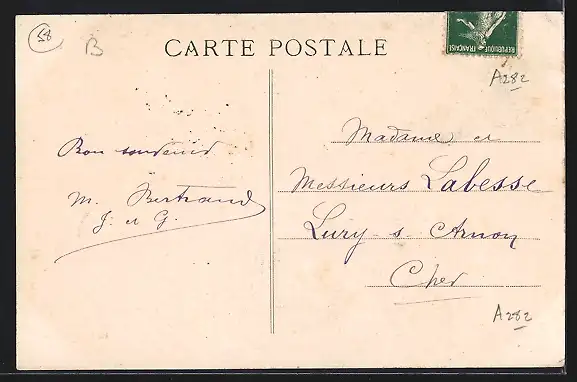 58
B
CARTE POSTALE
REPUBLIQUE FRANÇAISE
A282
Bon souvenir
M. Bertrand
J. et G.
Madame et
Messieurs Labesse
Lury s. Arnon
Cher
A282